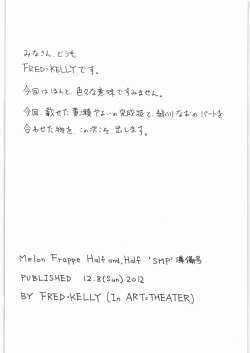 みなさん、どうも
FRED・KELLYです。
今回はほんと、色々な意味ですみません。
今回、載せた黄瀬やよいの完成版と、緑川なおのパートを
合わせた物を、この次こそ、出します。
Melon Frappe Half and, Half 'SMP' 準備号
PUBLISHED 12.8(Sun) 2012
BY FRED・KELLY (In ART=THEATER)